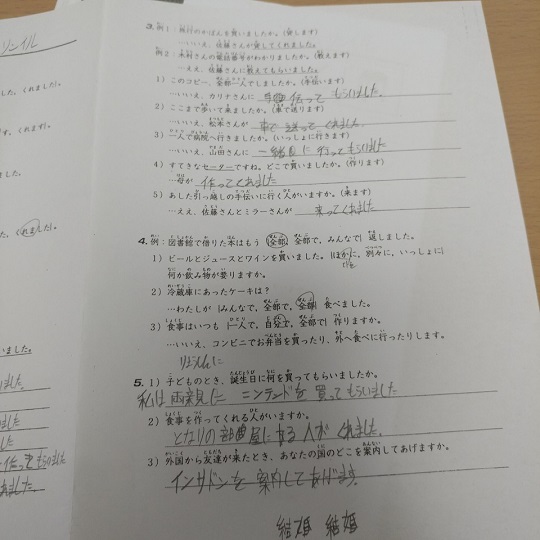 3. 例1：旅行のかばんを買いましたか。(貸します)
…いいえ、佐藤さんが貸してくれました。
例2：木村さんの電話番号がわかりましたか。(教えます)
…ええ、佐藤さんに教えてもらいました。
1) このコピー、全部一人でしましたか。(手伝います)
…いいえ、カリナさんに 手伝って もらいました。
2) ここまで歩いて来ましたか。(車で送ります)
…いいえ、松本さんが 車で 送って くれました
3) 一人で病院へ行きましたか。(いっしょに行きます)
…いいえ、山田さんに 一緒に 行って もらいました
4) すてきなセーターですね。どこで買いましたか。(作ります)
…母が 作ってくれました
5) あした引っ越しの手伝いに行く人がいますか。(来ます)
…ええ、佐藤さんとミラーさんが 来ってくれました
4. 例：図書館で借りた本はもう｛全部、全部で、みんなで｝返しました。
1) ビールとジュースとワインを買いました。｛ほかに、別々に、いっしょに｝
何か飲み物が要りますか。
2) 冷蔵庫にあったケーキは？
…わたしが｛みんなで、全部で、全部｝食べました。
3) 食事はいつも｛一人で、自分で、全部で｝作りますか。
…いいえ、コンビニでお弁当を買ったり、外へ食べに行ったりします。
5. 1) 子どものとき、誕生日に何を買ってもらいましたか。
私は 両親に ニンテンドを 買って もらいました
2) 食事を作ってくれる人がいますか。
となりの部屋に 人が くれました。
3) 外国から友達が来たとき、あなたの国のどこを案内してあげますか。
インサドンを 案内してあげます。
結婚 結婚